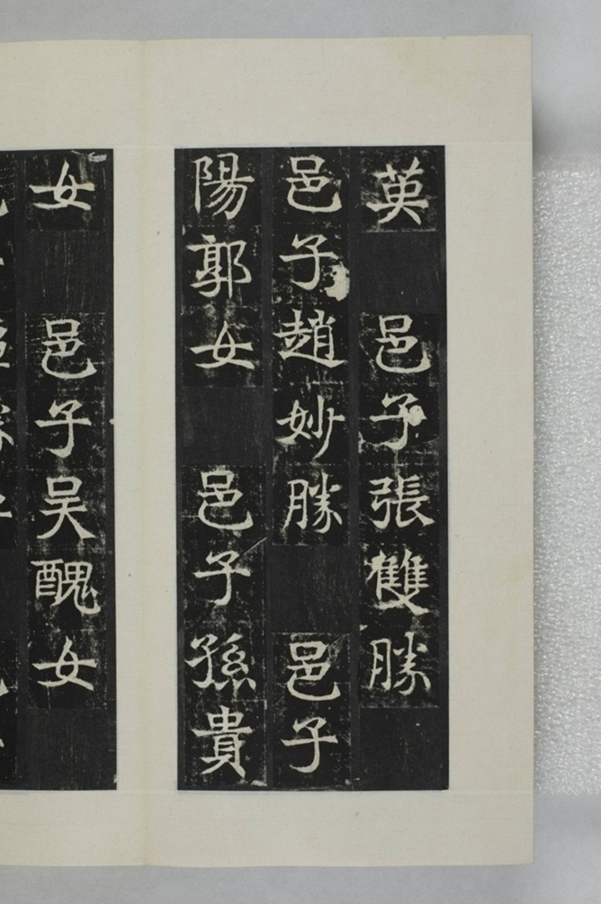 英 邑子張雙勝
邑子趙妙勝 邑子
陽郭女 邑子孫貴
女 邑子吴醜女